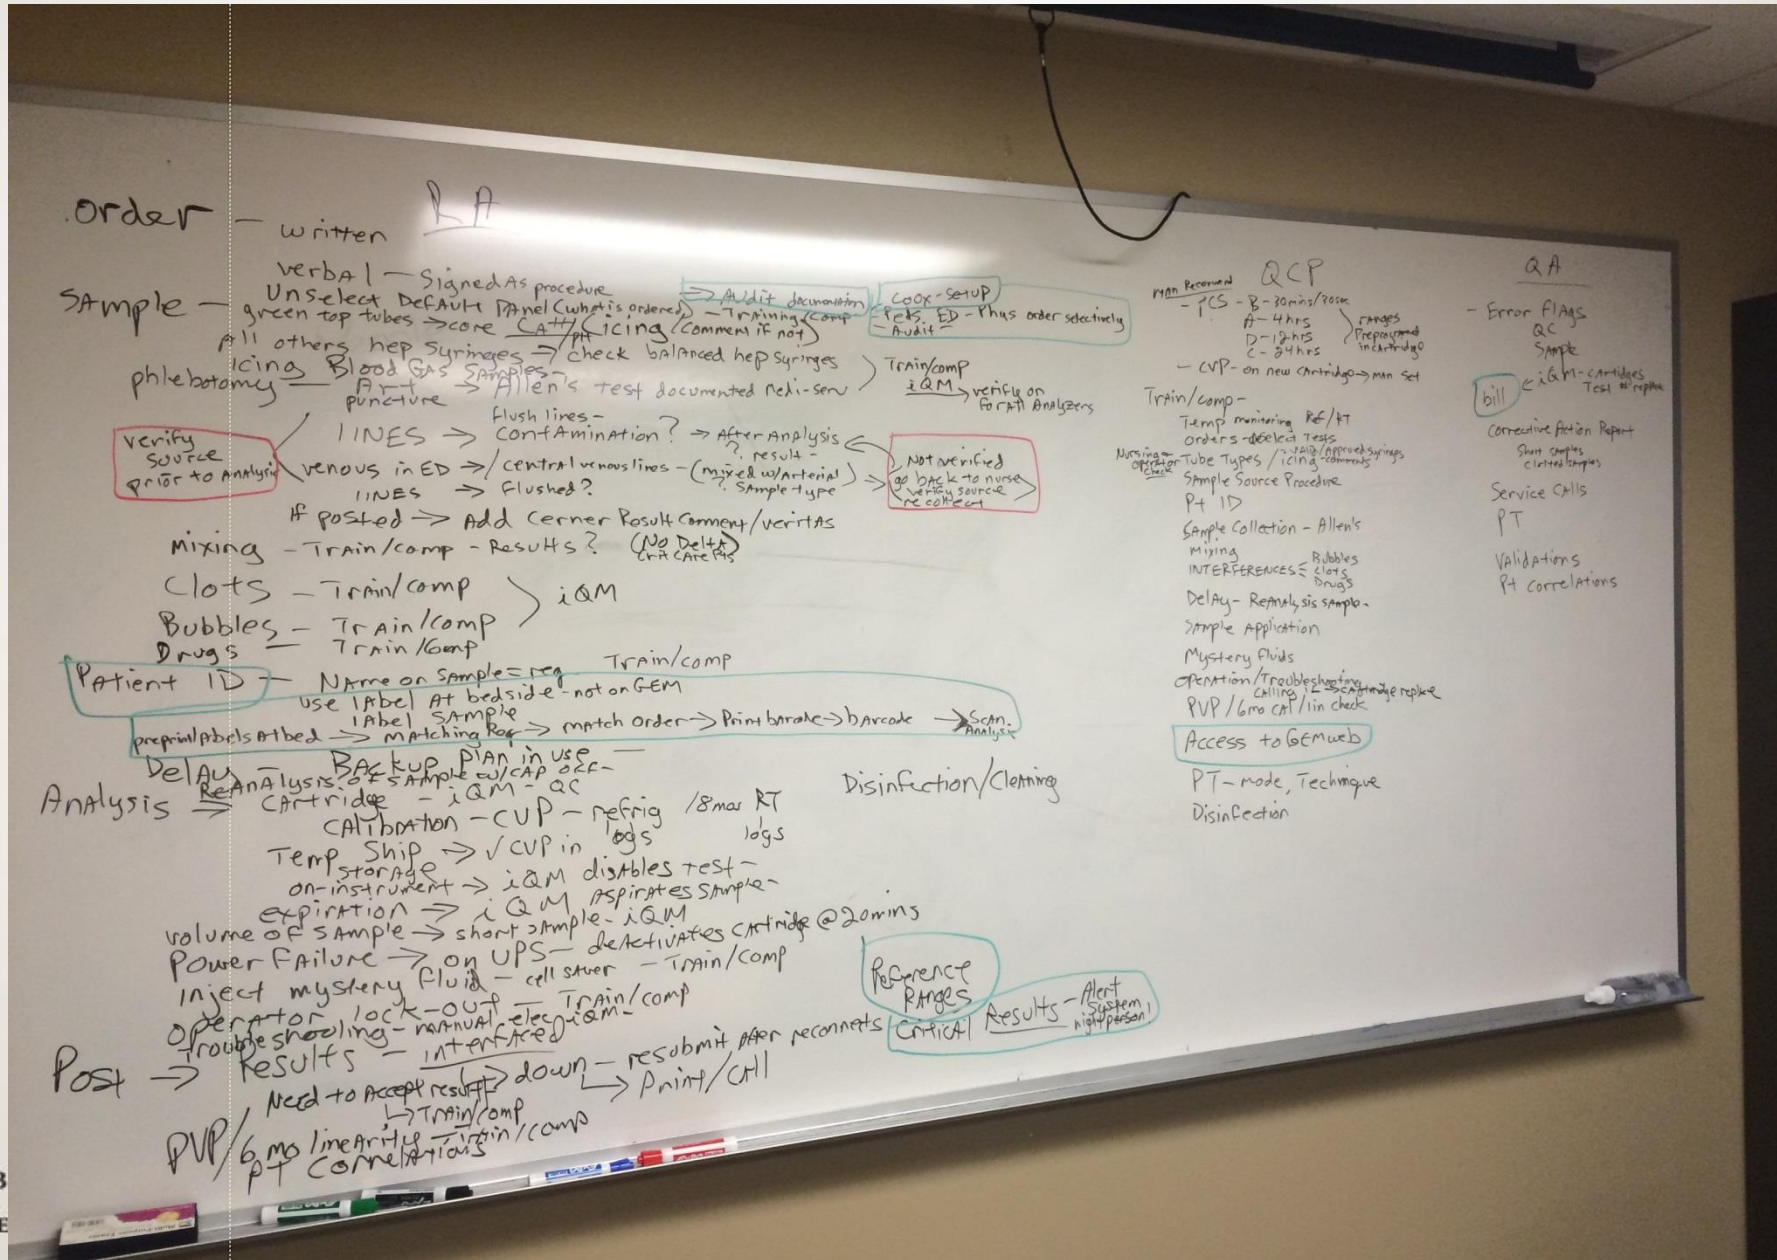 RA
order - written
verbAl - Signed As procedure
SAmple - Unselect DefAult PAnel (what is ordered) - Training/comp
=> Audit documentation
Coox-setup
- Peds, ED - Phys order selectively
- Audit -
green top tubes → core CA++/pH (icing (comment if not)
All others hep syringes → check bAlAnced hep syringes
icing Blood GAS SAmples -
phlebotomy - Art puncture → Allen's test documented Medi-serv
TrAin/comp
iQM → verify on
for All AnAlyzers
verify
source
prior to AnAlysis
flush lines -
LINES → contAminAtion? → After AnAlysis
? result -
venous in ED → / central venous lines - (mixed w/Arterial
? SAmple type
Not verified
go bAck to nurse
verify source
recollect
lINES → flushed?
If posted → Add Cerner Result Comment/veritAs
Mixing - TrAin/comp - Results? (No DeltA)
Crit CAre Pts
Clots - TrAin/comp
iQM
Bubbles - TrAin/comp
Drugs - TrAin/comp
PAtient ID - NAme on SAmple = req TrAin/comp
use lAbel At bedside - not on GEM
lAbel SAmple
preprint lAbels At bed → mAtching Req → mAtch order → Print bArcode → bArcode → ScAn.
AnAlysis
DelAy - BAckup plAn in use -
ReAnAlysis of sAmple w/cAp off -
AnAlysis => CArtridge - iQM - QC
Disinfection/CleAning
CAlibrAtion - CVP - refrig /8mos RT
logs logs
Temp Ship → √ CVP in
storAge
on-instrument → iQM disAbles test -
expirAtion → iQM AspirAtes SAmple -
volume of SAmple → short sAmple - iQM
Power FAilure → on UPS - deActivAtes CArtridge @ 20mins
Inject mystery fluid - cell sAver - TrAin/comp
operAtor lock-out - TrAin/comp
troubleshooting - mAnuAl elec iQM -
Reference
RAnges
CriticAl Results - Alert
System
night person!
Post → Results - interfAced
→ down - resubmit After reconnects
→ Print/CAll
Need to Accept result
→ TrAin/comp
PVP/6mo lineArity - TrAin/comp
pt CorrelAtions
QCP
MAn Recommend
- PCS - B - 30mins/
A - 4hrs
D - 12hrs
C - 24hrs
rAnges
Preprogrammed
in CArtridge
- CVP - on new CArtridge → mAn set
TrAin/comp -
Temp monitoring Ref/RT
orders - deselect Tests
Nursing -
operAtor
check
Tube Types / icing - comments
/Approved syringes
SAmple Source Procedure
Pt ID
SAmple Collection - Allen's
Mixing
INTERFERENCES = Bubbles
Clots
Drugs
DelAy - ReAnAlysis sAmple -
SAmple ApplicAtion
Mystery Fluids
OperAtion/Troubleshooting
CAlling → CArtridge replAce
PVP/6mo CAl/lin check
Access to GEMweb
PT - mode, Technique
Disinfection
QA
- Error flAgs
QC
SAmple
bill
← iQM - CArtridges
Test # replAce
Corrective Action Report
Short sAmples
Clotted sAmples
Service CAlls
PT
VAlidAtions
Pt CorrelAtions